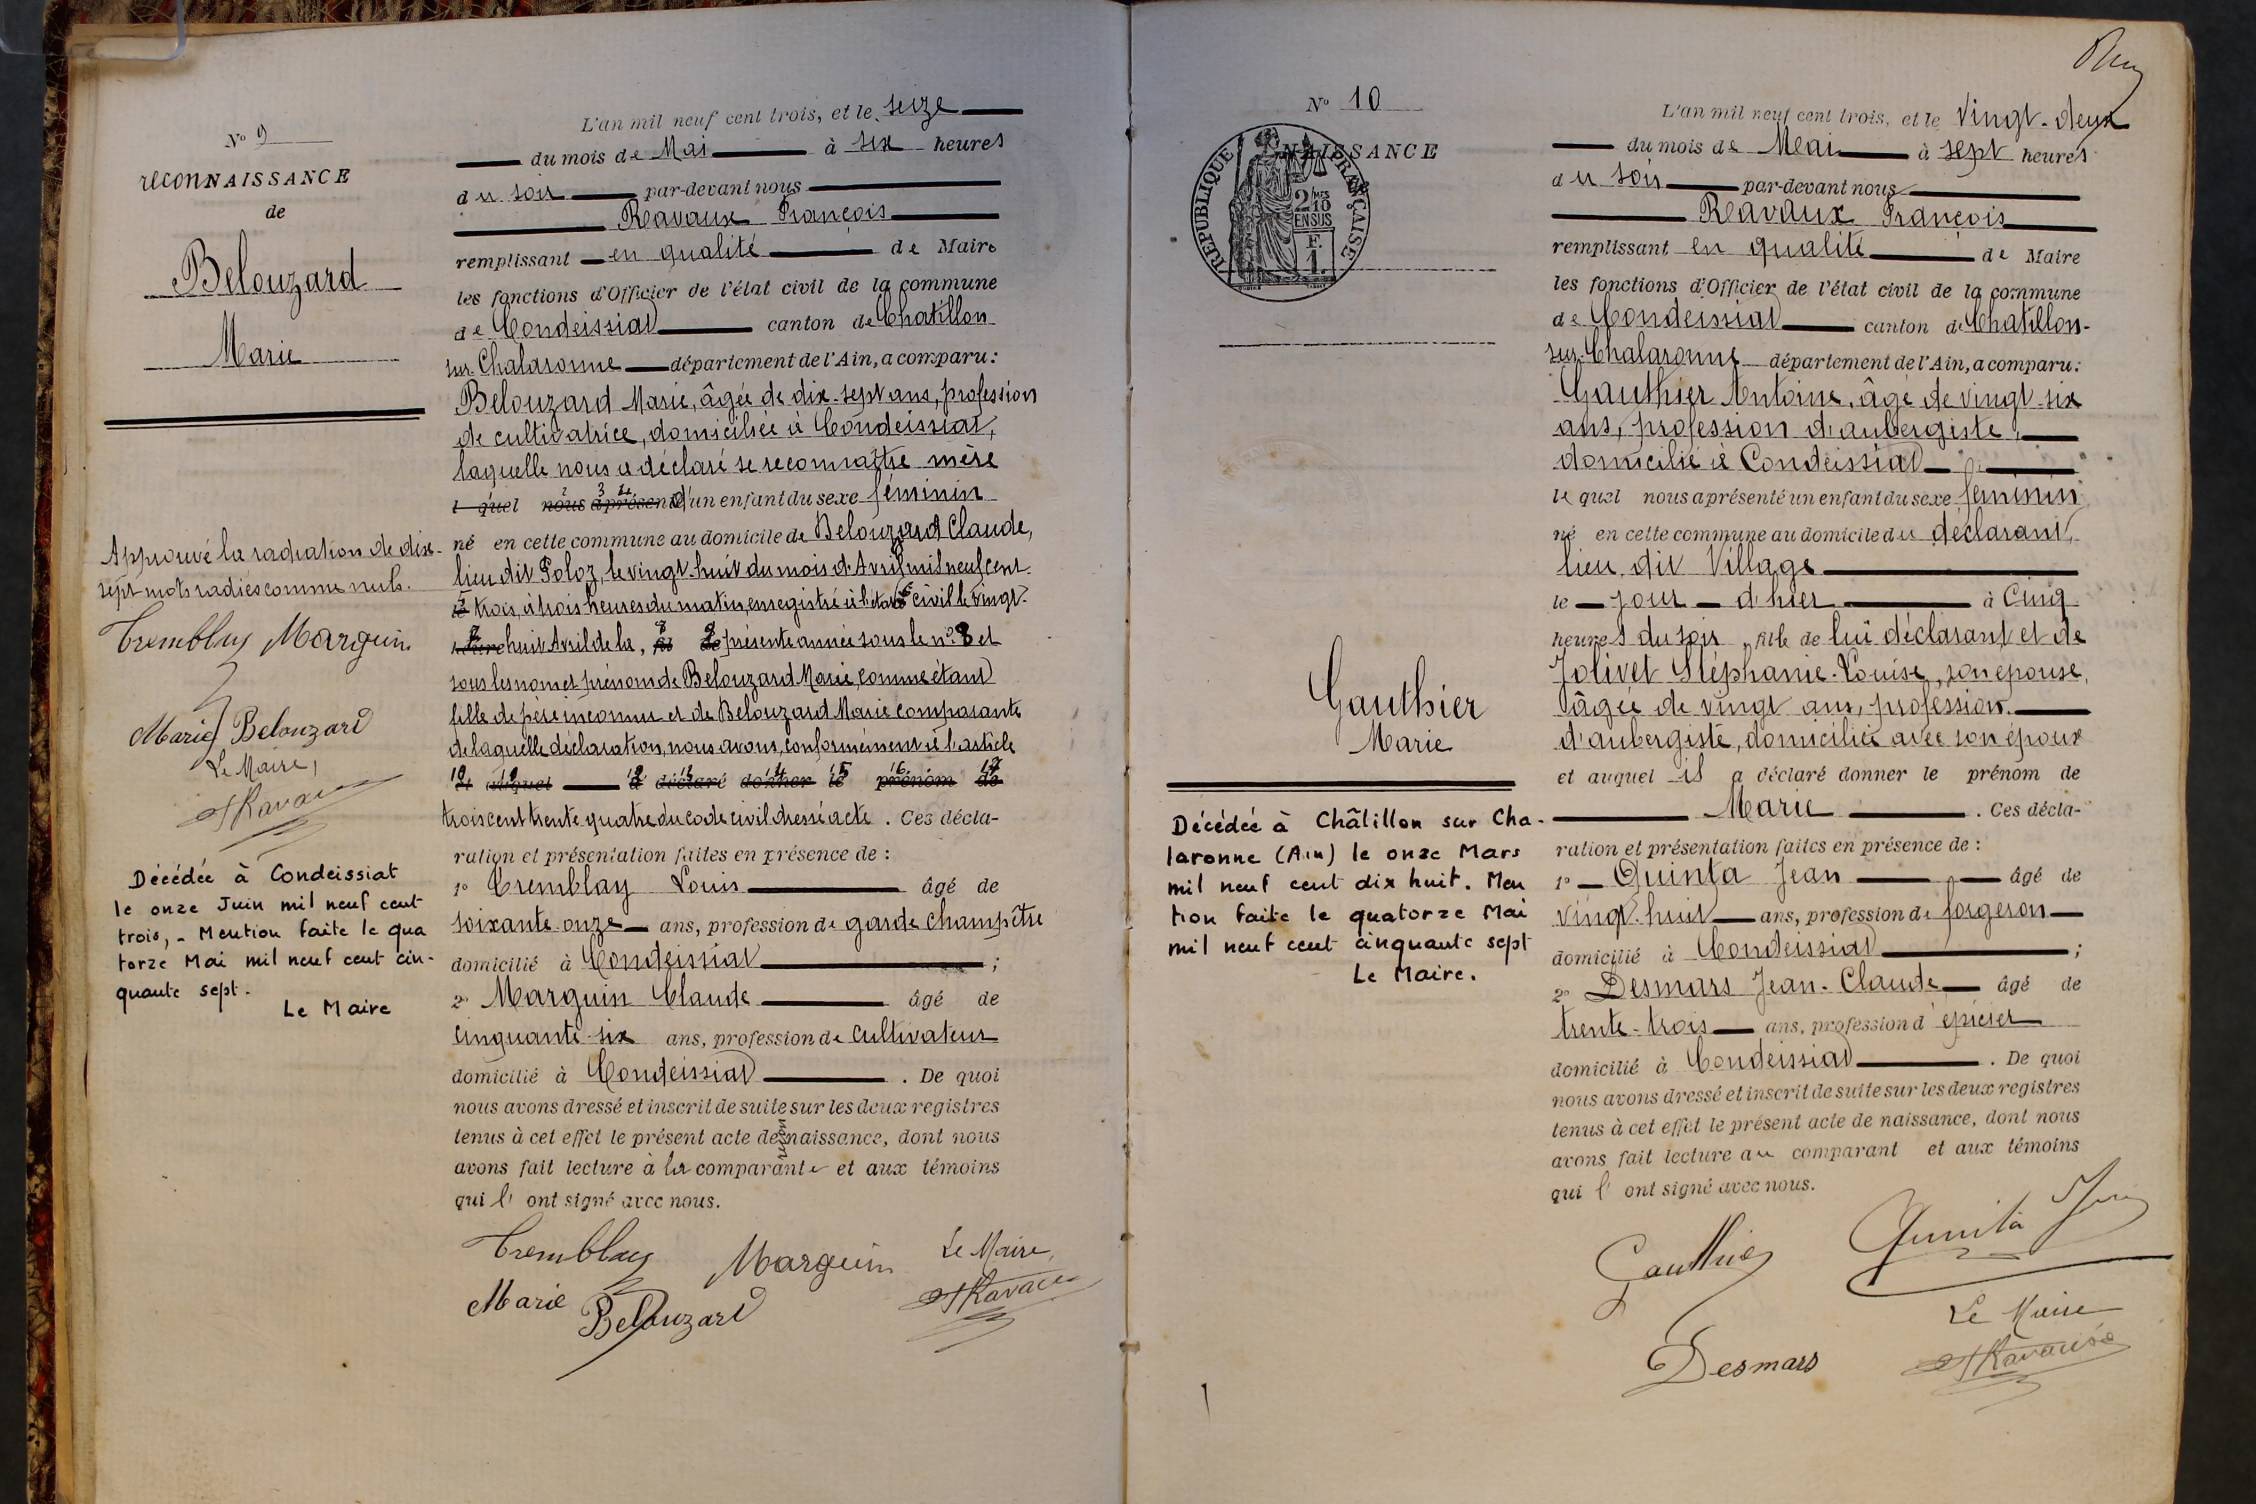 N° 9
RECONNAISSANCE
de
Belouzard
Marie
Approuvé la radiation de dix-
sept mots radiés comme nuls.
Tremblay Marguin
Marie Belouzard
Le Maire,
Décédée à Condeissiat
le onze Juin mil neuf cent
trois, - Mention faite le qua
torze Mai mil neuf cent cin-
quante sept.
Le Maire
L'an mil neuf cent trois, et le seize
du mois de Mai à six heures
du soir par-devant nous
Ravaux François
remplissant en qualité de Maire
les fonctions d'Officier de l'état civil de la commune
de Condeissiat canton de Chatillon
sur-Chalaronne département de l'Ain, a comparu:
Belouzard Marie, âgée de dix-sept ans, profession
de cultivatrice, domiciliée à Condeissiat,
laquelle nous a déclaré se reconnaître mère
l quel nous a présenté d'un enfant du sexe féminin
né en cette commune au domicile de Belouzard Claude,
lieu dit Poloz, le vingt-huit du mois d'Avril mil neuf cent
trois, à trois heures du matin, enregistré à l'état civil le vingt-
huit Avril de la présente année sous le n° 8 et
sous les nom et prénom de Belouzard Marie, comme étant
fille de père inconnu et de Belouzard Marie comparante
de laquelle déclaration, nous avons, conformément à l'article
10 et auquel 12 a 13 déclaré 14 donner 15 le 16 prénom 17 de
trois cent trente quatre du code civil dressé acte. Ces décla-
ration et présentation faites en présence de :
1° Tremblay Louis âgé de
soixante-onze ans, profession de garde champêtre
domicilié à Condeissiat ;
2° Marguin Claude âgé de
cinquante-six ans, profession de cultivateur
domicilié à Condeissiat . De quoi
nous avons dressé et inscrit de suite sur les deux registres
tenus à cet effet le présent acte de reconnaissance, dont nous
avons fait lecture à la comparante et aux témoins
qui l' ont signé avec nous.
Tremblay Marguin Le Maire,
Marie Belouzard Ravaux
N° 10
NAISSANCE
RÉPUBLIQUE FRANÇAISE
2/10 MES
EN SUS
F.
1.
Gauthier
Marie
Décédée à Châtillon sur Cha-
laronne (Ain) le onze Mars
mil neuf cent dix huit. Men
tion faite le quatorze Mai
mil neuf cent cinquante sept
Le Maire.
L'an mil neuf cent trois, et le vingt-deux
du mois de Mai à sept heures
du soir par-devant nous
Ravaux François
remplissant en qualité de Maire
les fonctions d'Officier de l'état civil de la commune
de Condeissiat canton de Chatillon-
sur-Chalaronne département de l'Ain, a comparu:
Gauthier Antoine, âgé de vingt-six
ans, profession d'aubergiste,
domicilié à Condeissiat
le quel nous a présenté un enfant du sexe féminin
né en cette commune au domicile du déclarant,
lieu dit Village
le jour d'hier à Cinq
heures du soir, fille de lui déclarant et de
Jolivet Stéphanie-Louise, son épouse,
âgée de vingt ans, profession
d'aubergiste, domiciliée avec son époux
et auquel il a déclaré donner le prénom de
Marie . Ces décla-
ration et présentation faites en présence de :
1° Quinta Jean âgé de
vingt-huit ans, profession de forgeron
domicilié à Condeissiat ;
2° Desmars Jean-Claude âgé de
trente-trois ans, profession d'épicier
domicilié à Condeissiat . De quoi
nous avons dressé et inscrit de suite sur les deux registres
tenus à cet effet le présent acte de naissance, dont nous
avons fait lecture au comparant et aux témoins
qui l' ont signé avec nous.
Gauthier Quinta Jean
Le Maire
Desmars Ravaux